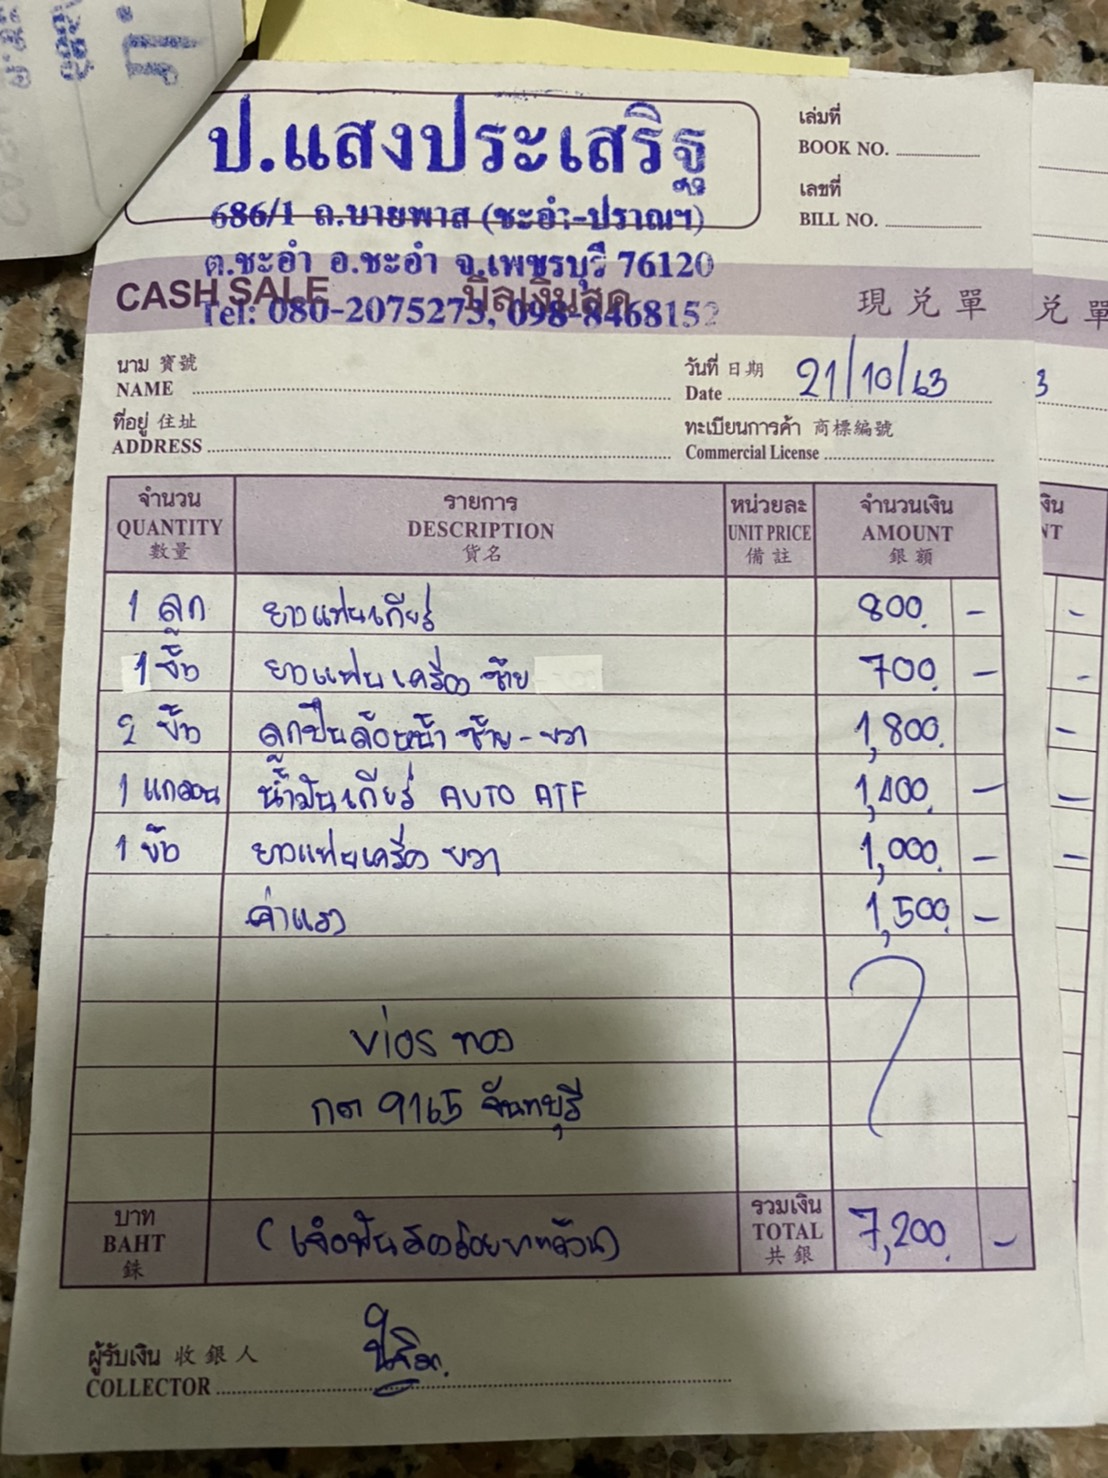 ป.แสงประเสริฐ
686/1 ถ.บายพาส (ชะอำ-ปราณฯ)
ต.ชะอำ อ.ชะอำ จ.เพชรบุรี 76120
Tel: 080-2075273, 098-8468152
เล่มที่
BOOK NO.
เลขที่
BILL NO.
CASH SALE บิลเงินสด 現兌單
兌單
นาม 寶號
NAME
วันที่ 日期
Date 21/10/63
3
ที่อยู่ 住址
ADDRESS
ทะเบียนการค้า 商標編號
Commercial License
จำนวน รายการ หน่วยละ จำนวนเงิน
QUANTITY DESCRIPTION UNIT PRICE AMOUNT
數量 貨名 備註 銀額
1 ลูก ยางแท่นเกียร์ 800. -
1 ชิ้น ยางแท่นเครื่อง ซ้าย 700. -
2 ชิ้น ลูกปืนล้อหน้า ซ้าย-ขวา 1,800.
1 แกลอน น้ำมันเกียร์ AUTO ATF 1,400. -
1 ชิ้น ยางแท่นเครื่อง ขวา 1,000. -
ค่าแรง 1,500. -
vios ทอง
กต 9165 จันทบุรี
บาท รวมเงิน
BAHT (เจ็ดพันสองร้อยบาทถ้วน) TOTAL 7,200. -
銖 共銀
ผู้รับเงิน 收銀人
COLLECTOR